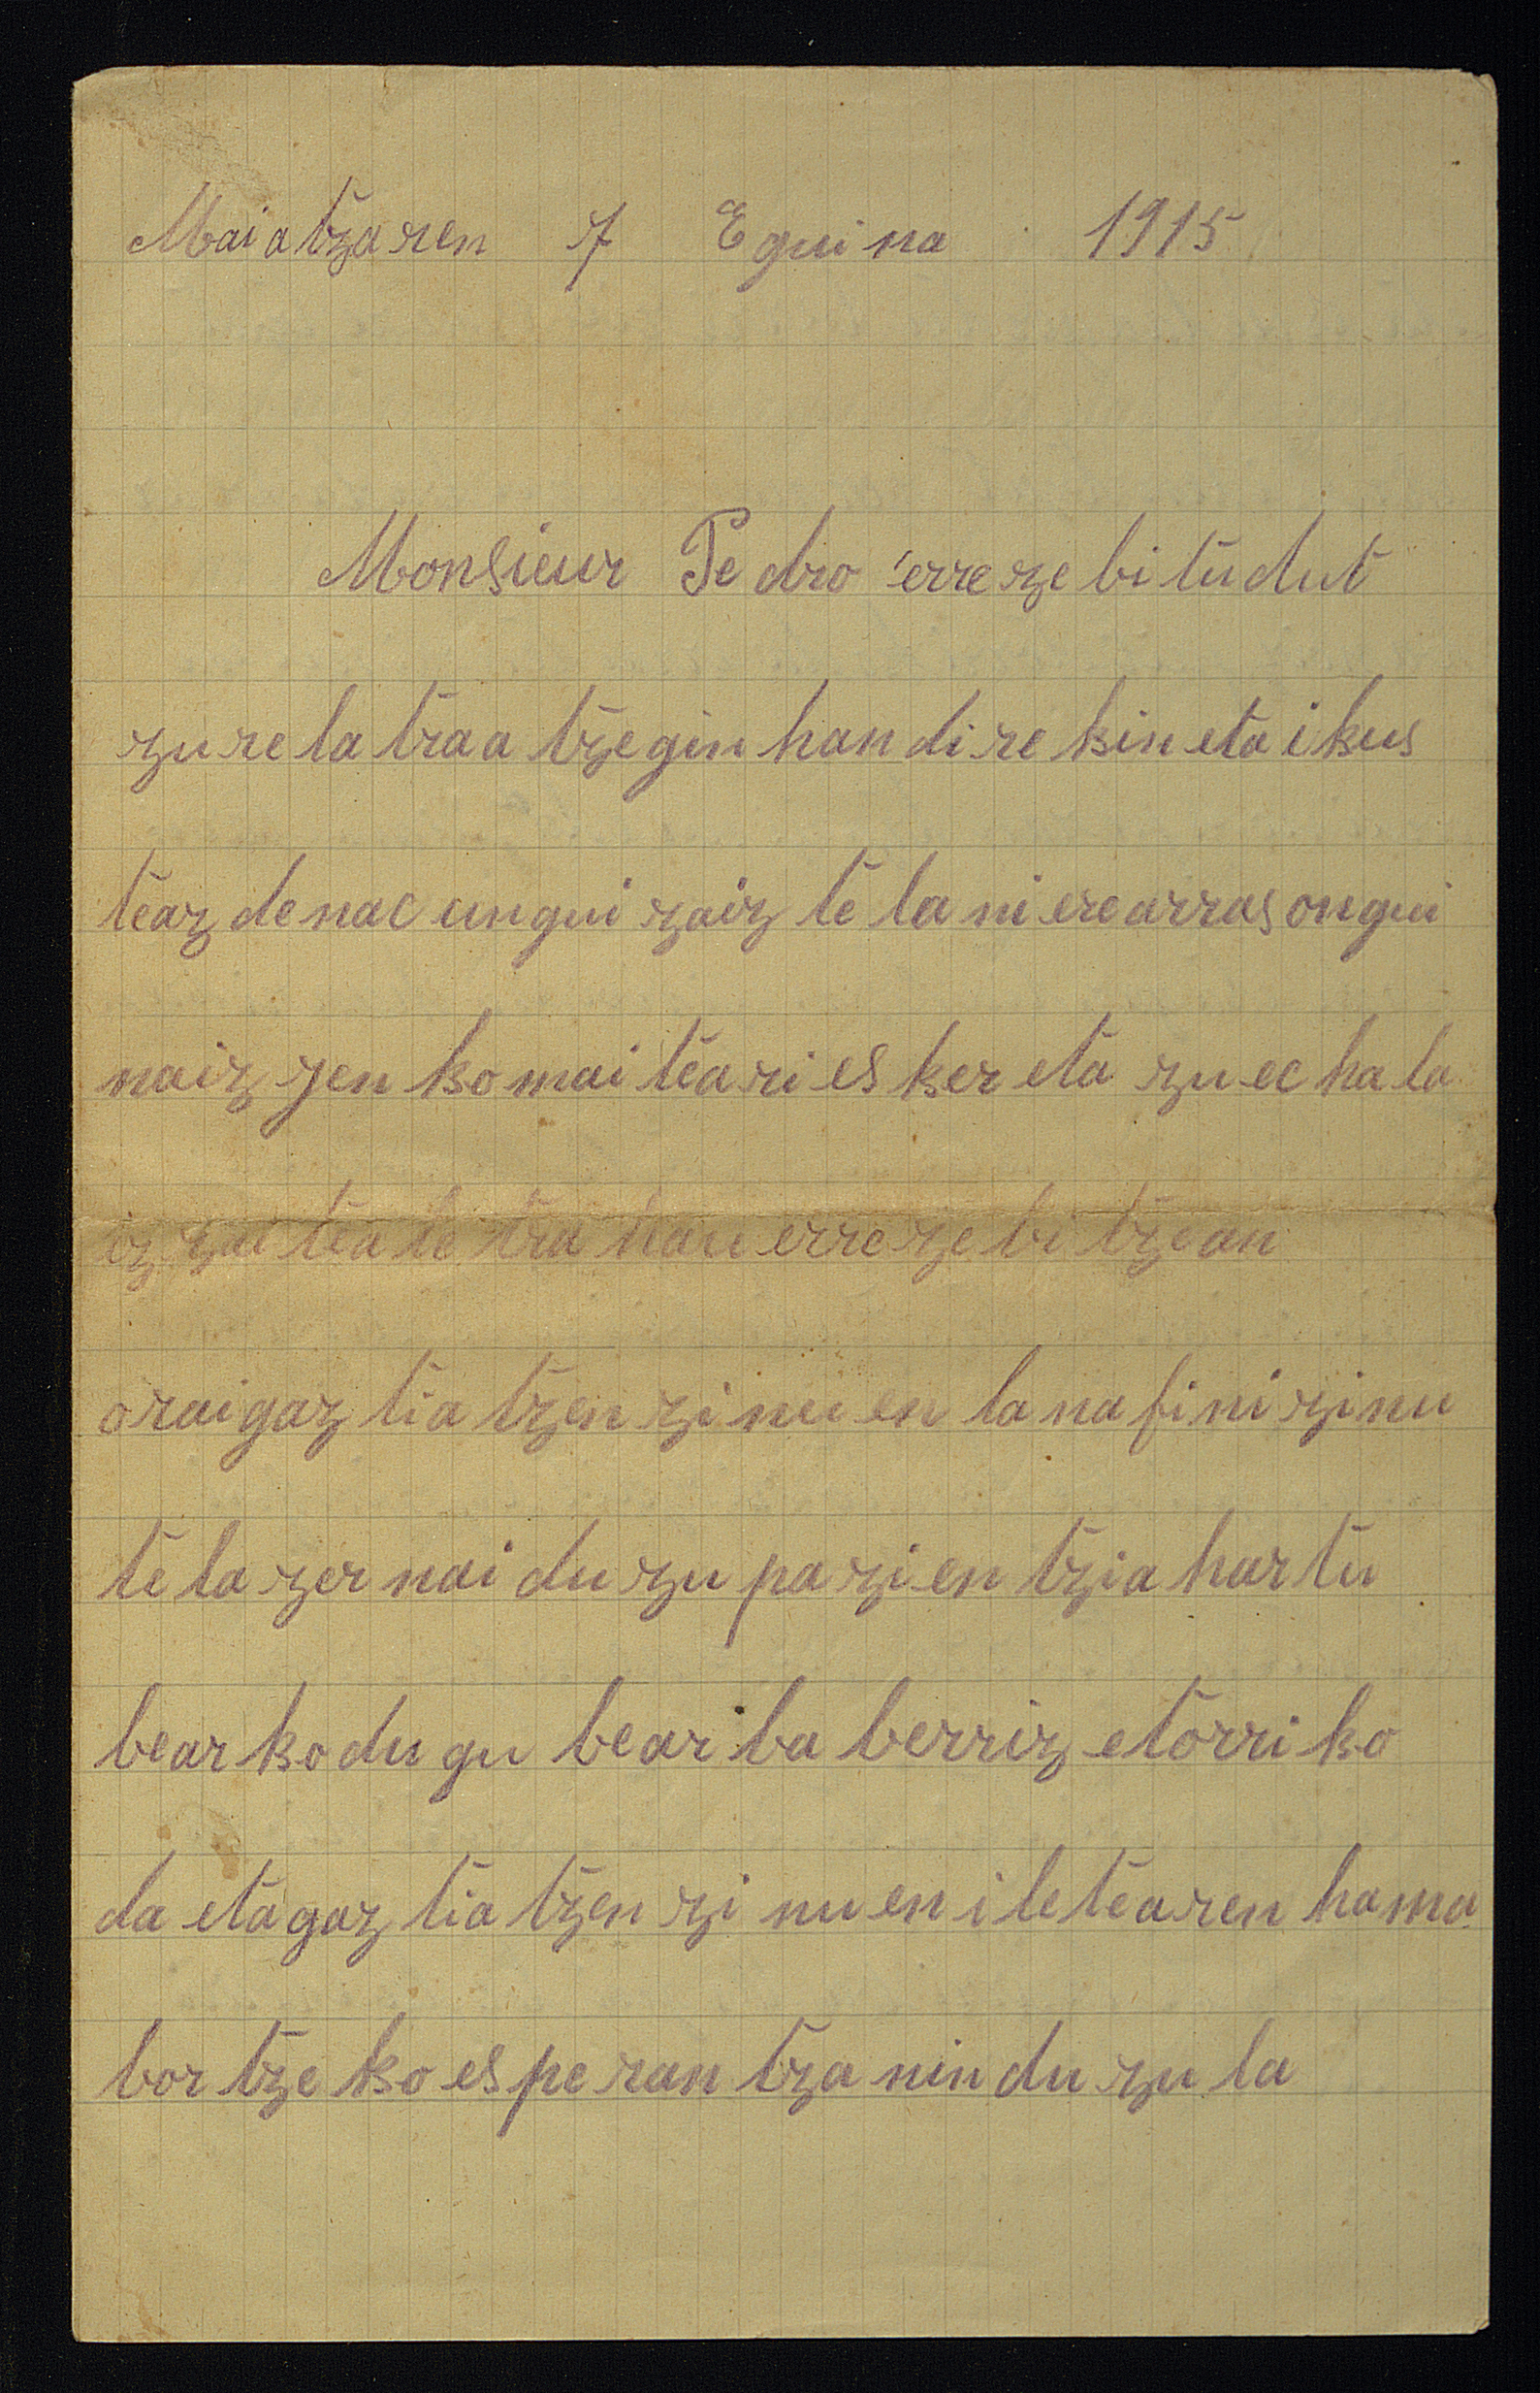 Maiatzaren 7 Eguina 1915
Monsieur Pedro errezebitudut
zure la traa tzegin handirekin eta ikus
teaz denac ungui zaizte la ni ere arras ongui
naiz jenko maiteari esker eta zuec hala
iz zaitea letra hau errezebitzean
orai gaztiatzen zinuen lana fini zinu
tela zer nai duzu pazientzia hartu
bearko dugu bear ba berriz etorriko
da eta gaztiatzen zinuen iletearen hama
bortzeko esperantza nin duzula